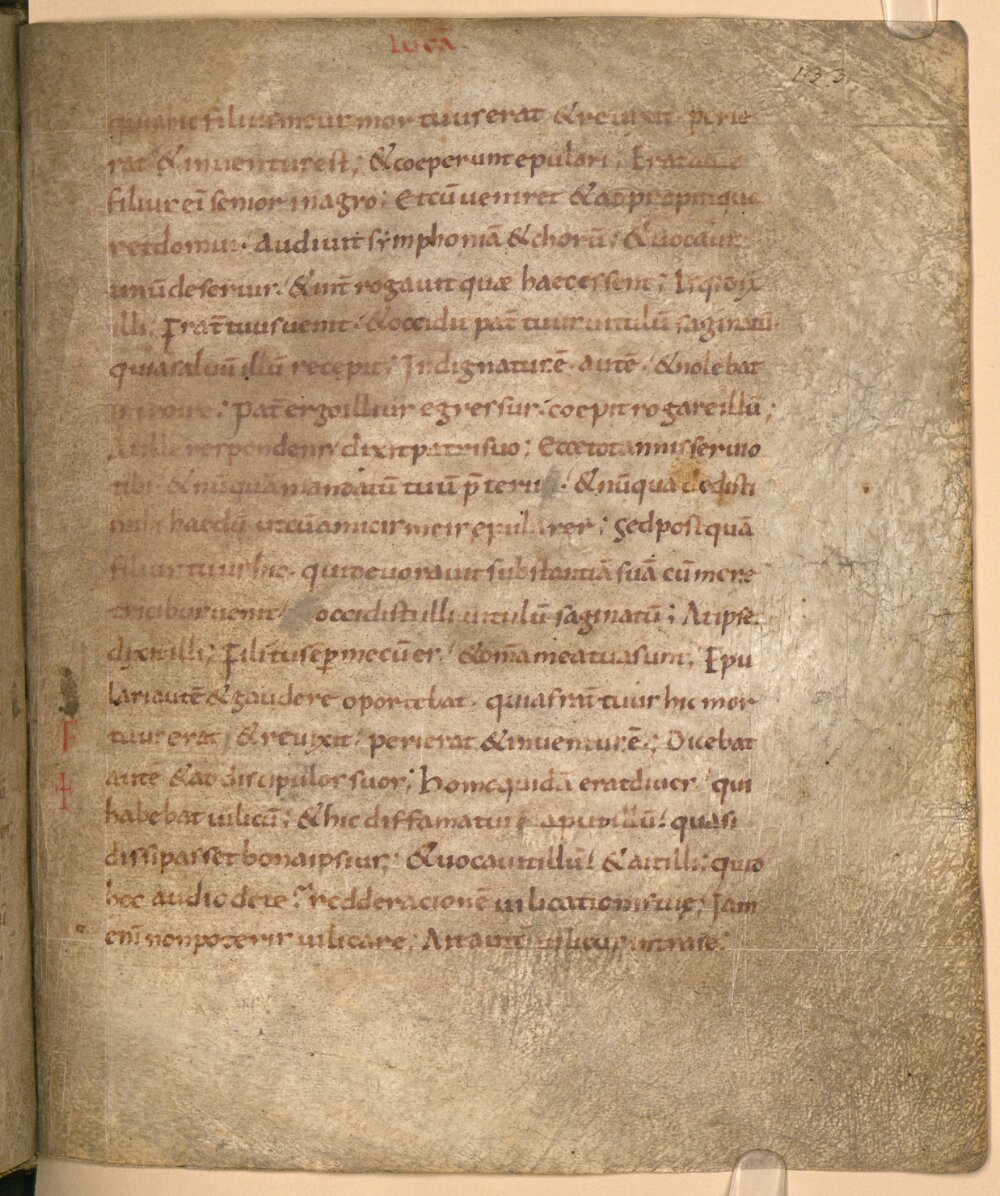 lucā
133
quiahic filiusmeus mortuuserat & reuixit· perie
rat & inuentusest; & coeperunt epulari; Erataute
filius ei senior inagro; Etcū ueniret & appropinqua
retdomui· audiuit symphoniā & chorū; & uocauit
unū deseruis· & int̄rogauit quæ haecessent; Isq; dix
illi; Frat̄ tuusuenit· & occidit pat̄ tuus uitulū saginatū·
quiasaluū illū recepit; Indignatus ē autē· & nolebat
introire; Pat̄ ergo illius egressus· coepit rogareillū;
Atille respondens dixit patrisuo; Eccetotannisseruio
tibi· & nūquā mandatū tuū p̄terii· & nūqua dedisti
mihi haedū utcūamicis meis epularer; Sed postquā
filius tuus hic· qui deuorauit substantiā suā cūmere
tricibus uenit· occidisti illi uitulū saginatū; Atipse
dixit illi; Fili tu semp̄ mecū es· & om̄a mea tua sunt; Epu
lariautē & gaudere oportebat· quia frat̄ tuus hic mor
tuus erat· & reuixit· perierat & inuentus ē; Dicebat
autē & ad discipulos suos; Homo quidā erat diues· qui
habebat uilicū; & hic diffamatus ē apud illū· quasi
dissipasset bona ipsius; & uocauit illū· & ait illi; quid
hoc audio de te? redde racionē uilicationis tuę; Iam
eni non poteris uilicare; Ait autē uilicus intra se;